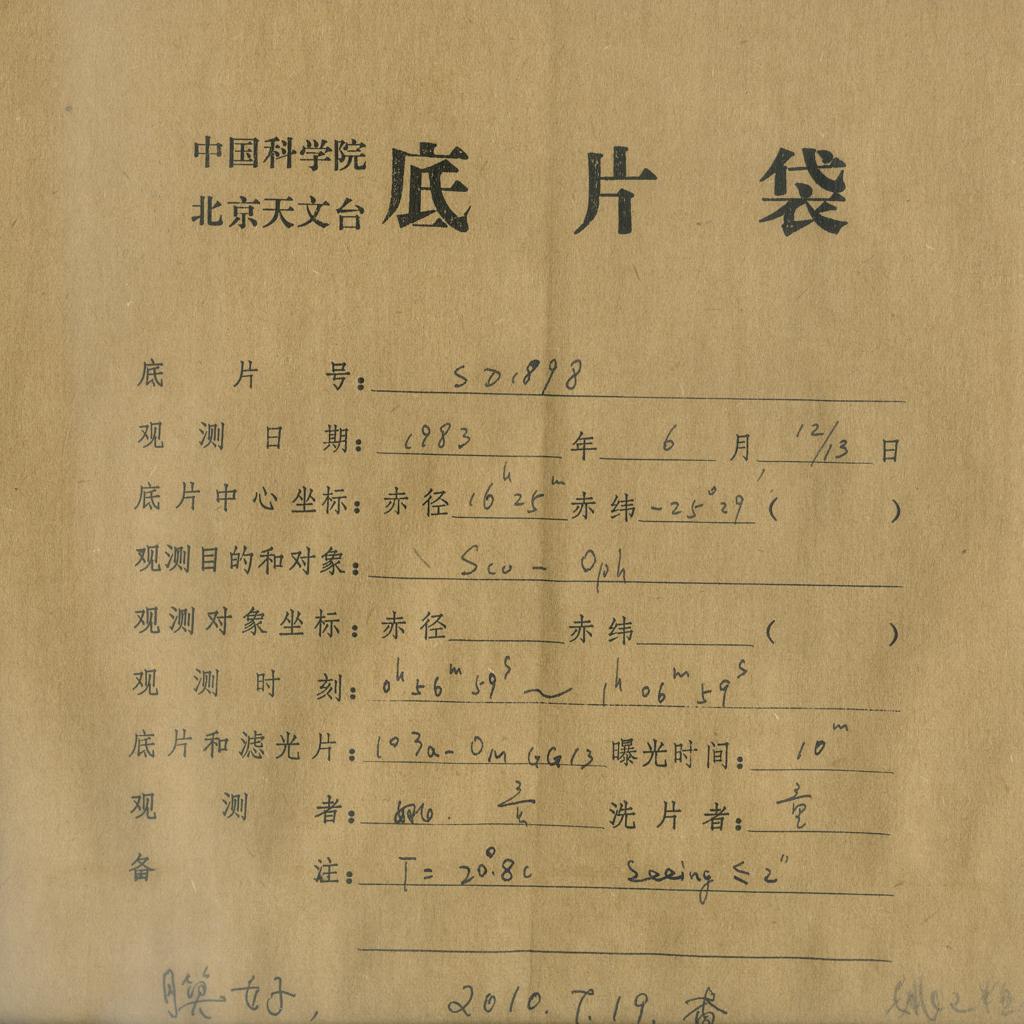 中国科学院
北京天文台 底片袋
底片号: SD1898
观测日期: 1983 年 6 月 12/13 日
底片中心坐标: 赤径 16h25m 赤纬 -25°29′ ( )
观测目的和对象: Sco - Oph
观测对象坐标: 赤径 赤纬 ( )
观测时刻: 0h56m59s ~ 1h06m59s
底片和滤光片: 103a-O GG13 曝光时间: 10m
观测者: 洗片者: 童
备注: T= 20°.8C Seeing ≤ 2″
膜好, 2010.7.19.